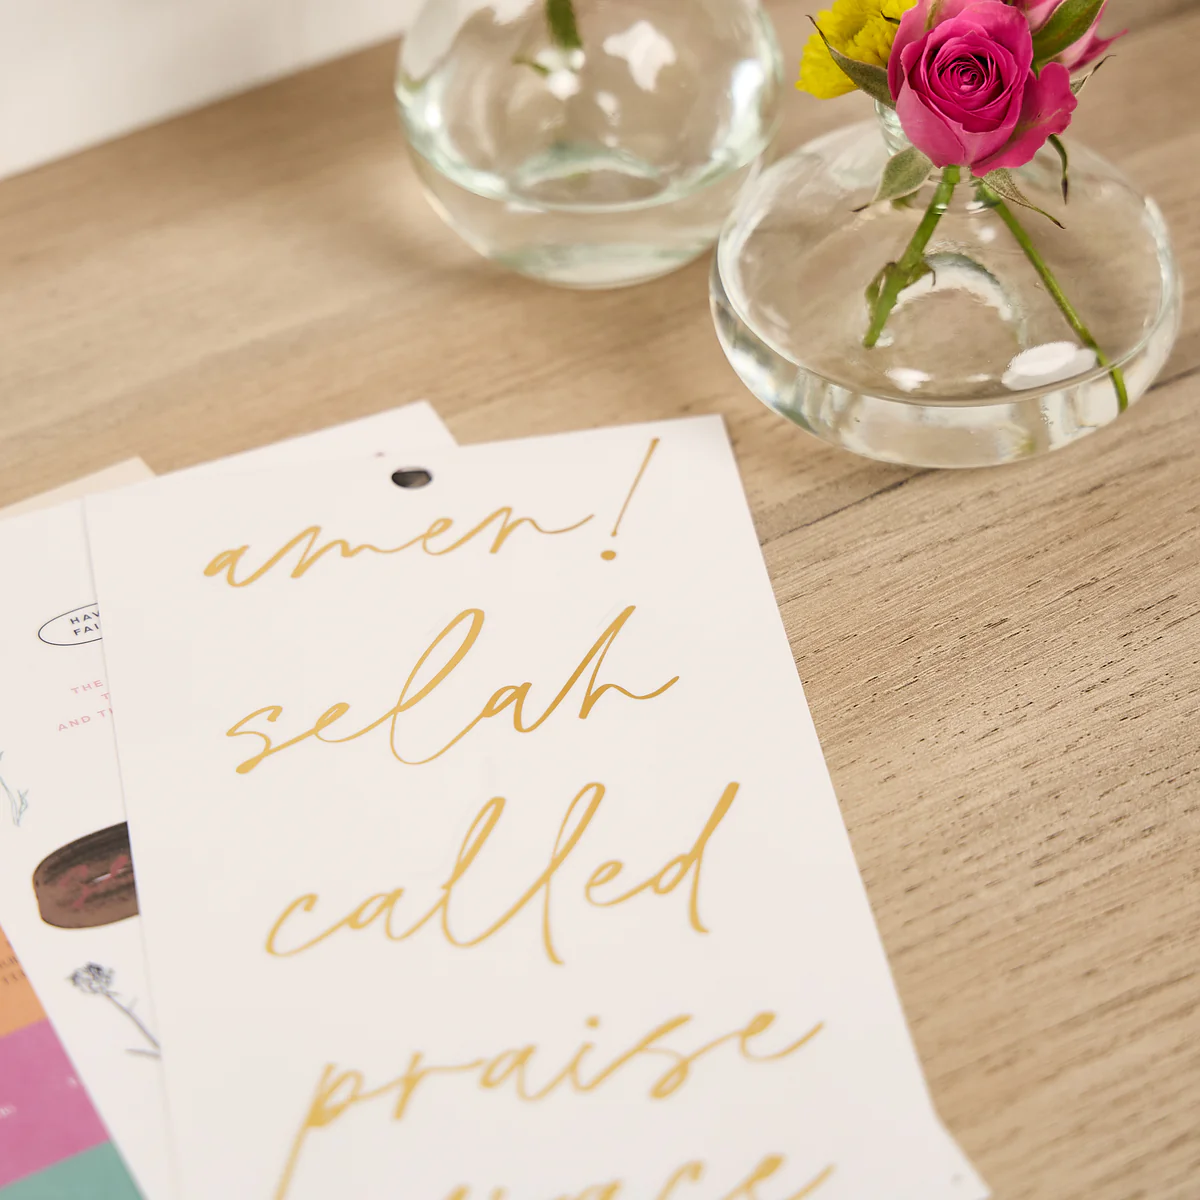 amen!
selah
called
praise
HAV
FAI
THE
T
AND TH